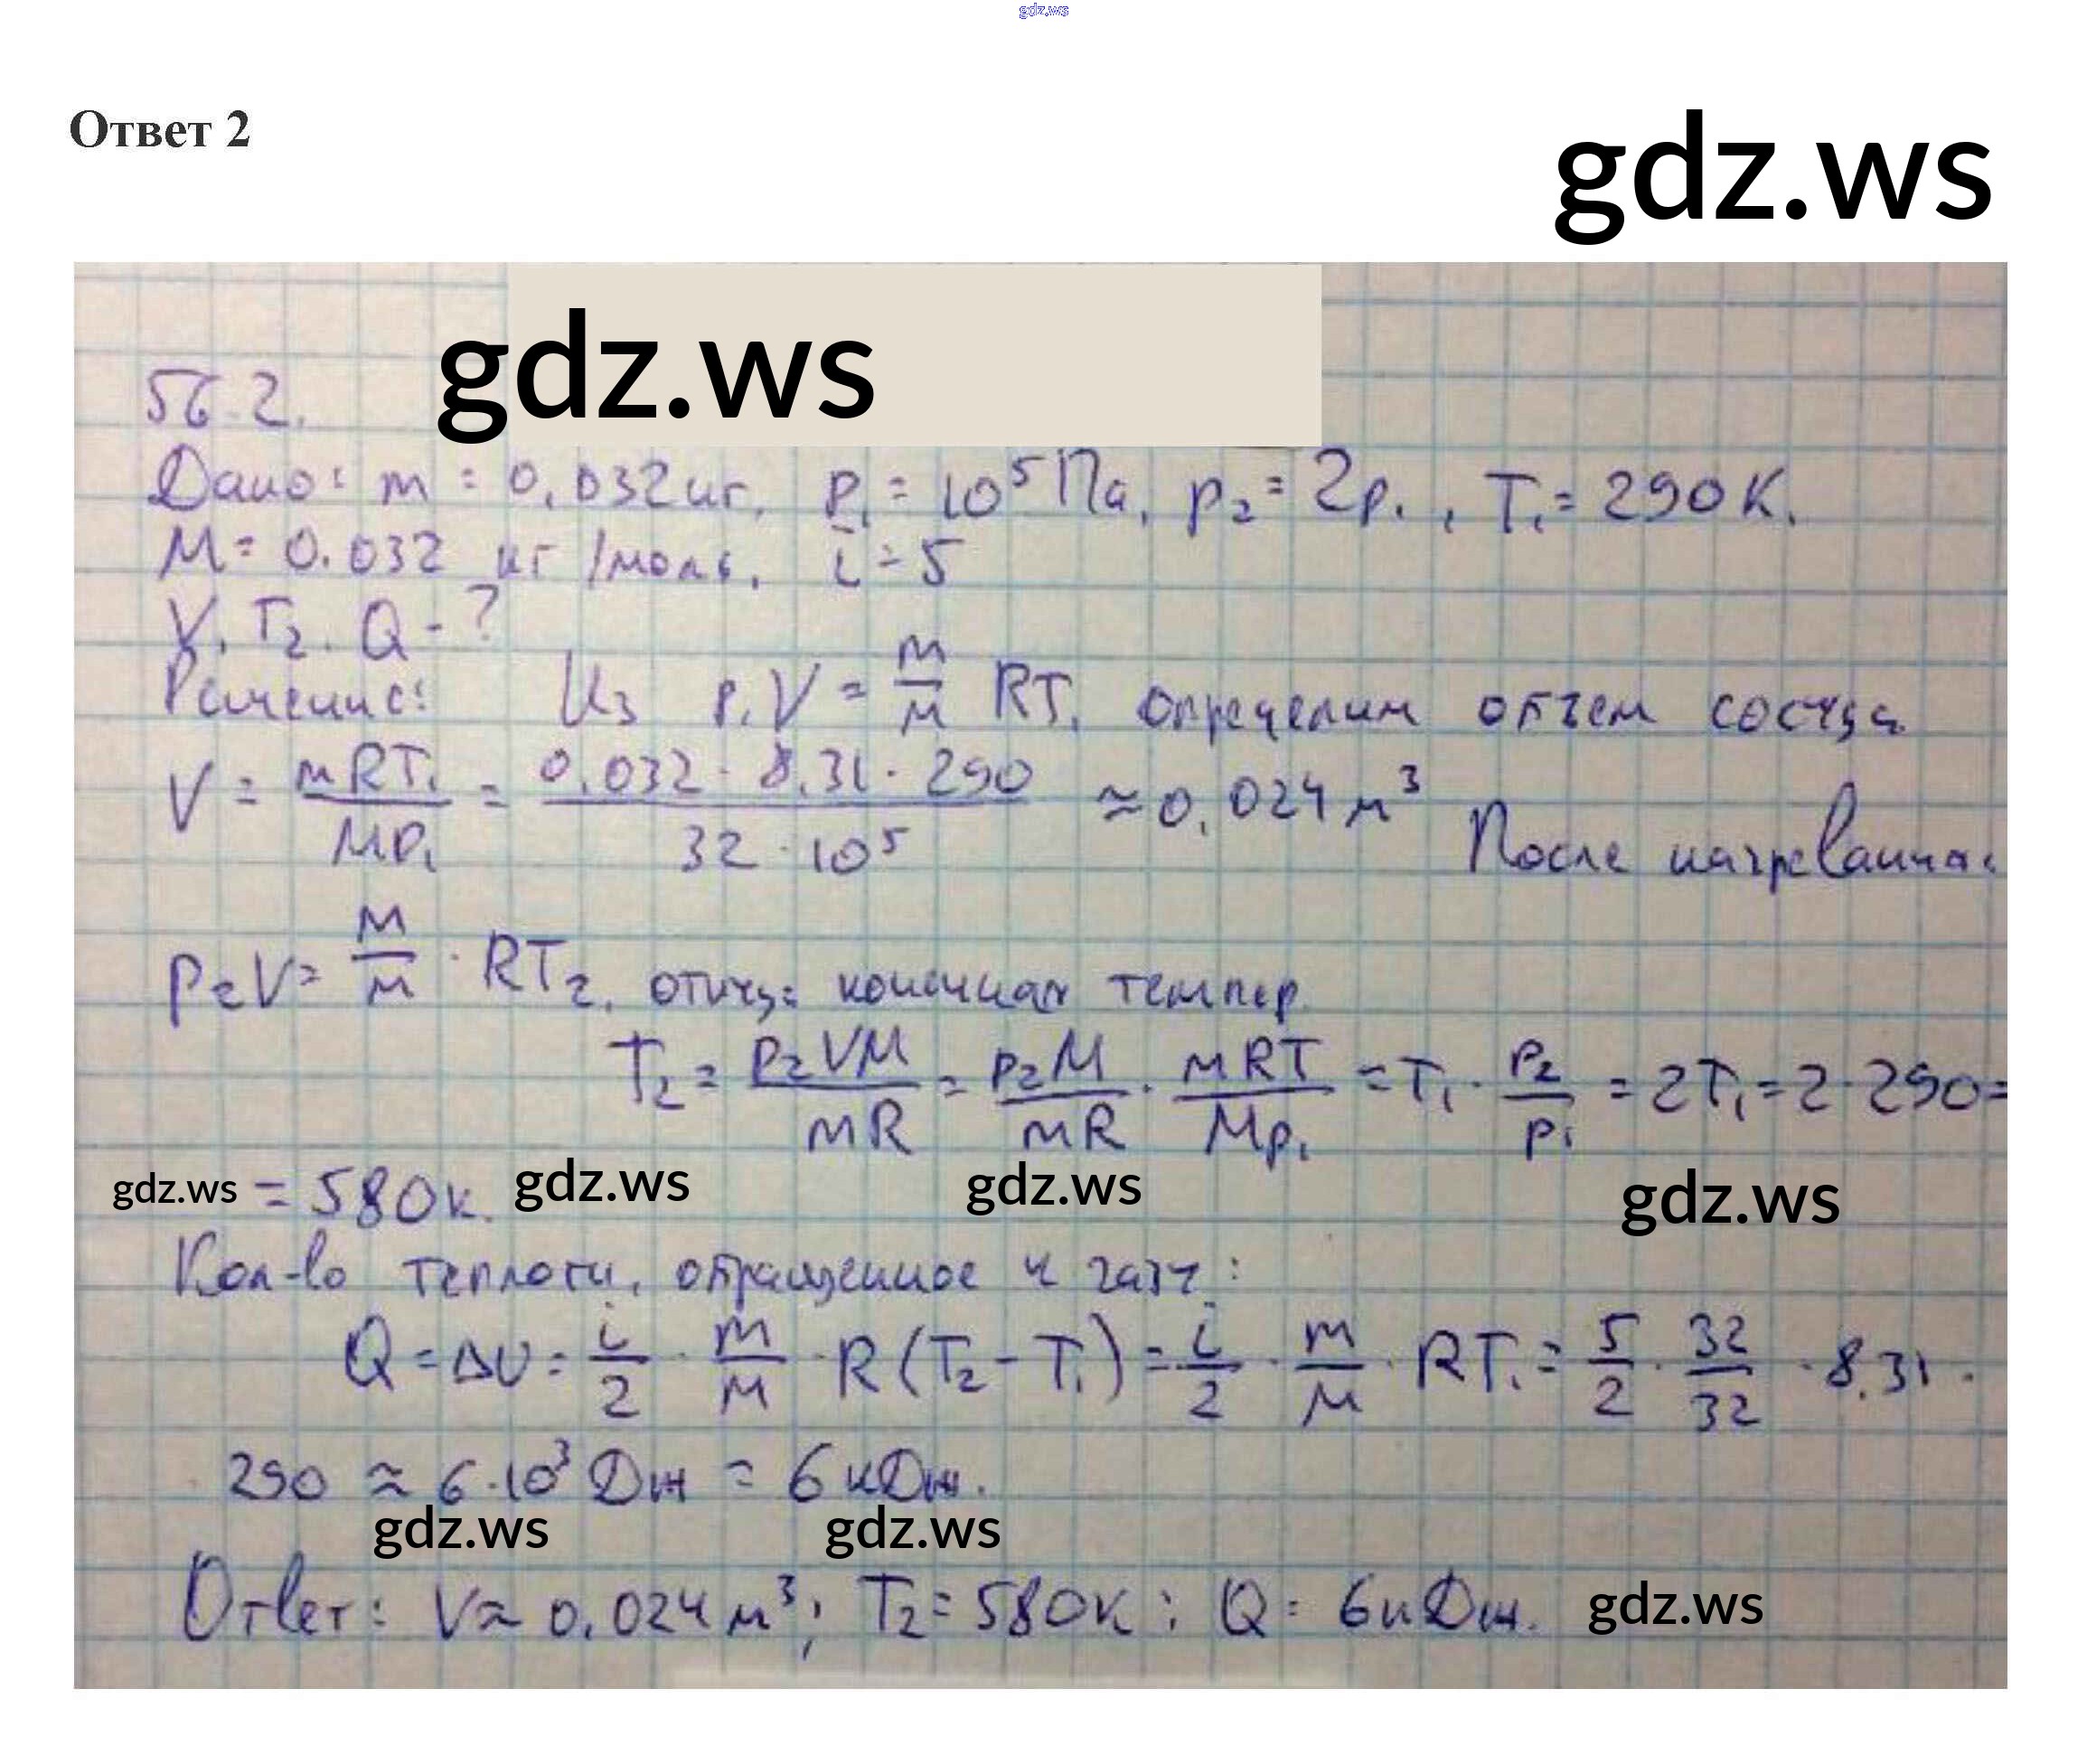 gdz.ws
Ответ 2
gdz.ws
gdz.ws
56.2.
Дано: m = 0,032 кг, p₁ = 10⁵ Па, p₂ = 2p₁, T₁ = 290 К.
M = 0.032 кг/моль, i = 5
V, T₂, Q - ?
Решение: Из p₁V = m/M RT₁ определим объем сосуда
V = mRT₁/Mp₁ = 0,032 · 8,31 · 290 / 32 · 10⁵ ≈ 0,024 м³ После нагревания:
p₂V = m/M · RT₂, отсюда конечная темпер.
T₂ = p₂VM/mR = p₂M/mR · mRT/Mp₁ = T₁ · p₂/p₁ = 2T₁ = 2 · 290 =
gdz.ws = 580 К. gdz.ws gdz.ws gdz.ws
Кол-во теплоты, обращенное к газу:
Q = ΔU = i/2 · m/M · R(T₂ - T₁) = i/2 · m/M · RT₁ = 5/2 · 32/32 · 8,31 ·
· 290 ≈ 6 · 10³ Дж = 6 кДж.
gdz.ws gdz.ws
Ответ: V ≈ 0,024 м³; T₂ = 580 К; Q = 6 кДж. gdz.ws